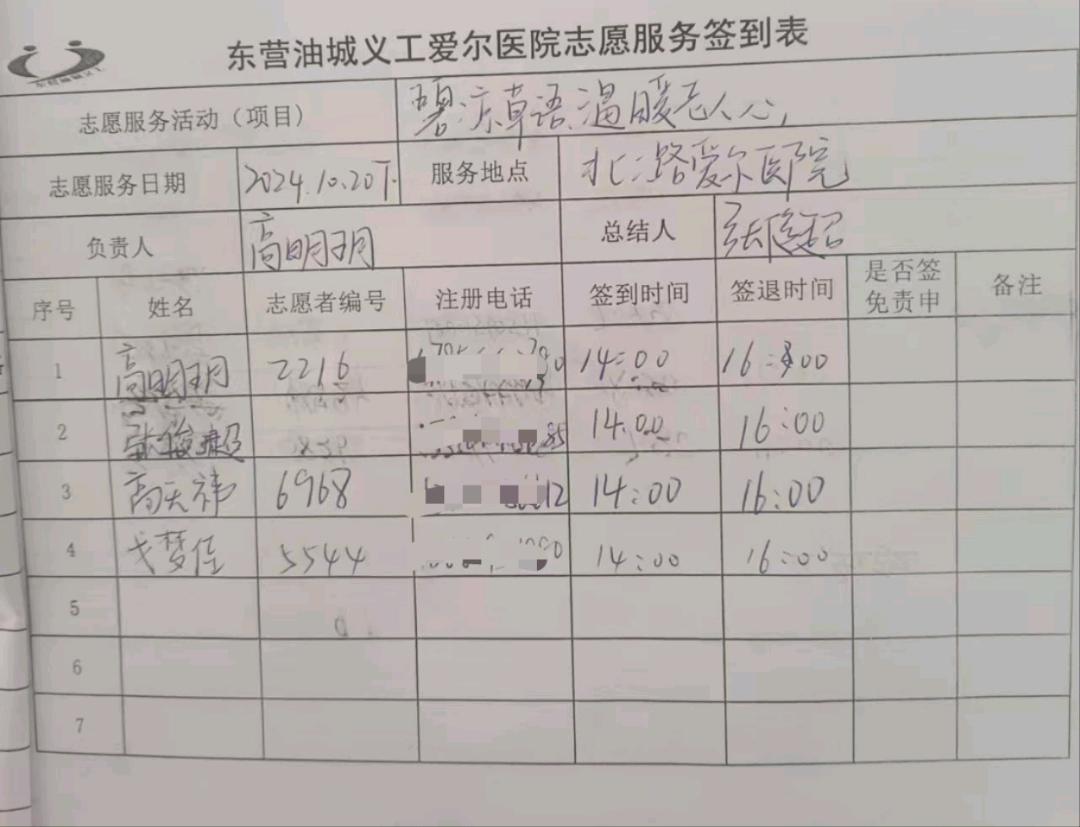 东营油城义工爱尔医院志愿服务签到表
东营油城义工
志愿服务活动（项目） 碧凉草语,温暖老人心,
志愿服务日期 2024.10.20下 服务地点 北二路爱尔医院
负责人 高明玥 总结人 张
序号 姓名 志愿者编号 注册电话 签到时间 签退时间 是否签免责申 备注
1 高明玥 2216 14:00 16:00
2 张俊超 14:00 16:00
3 高天祎 6968 14:00 16:00
4 戈梦佳 5544 14:00 16:00
5
6
7